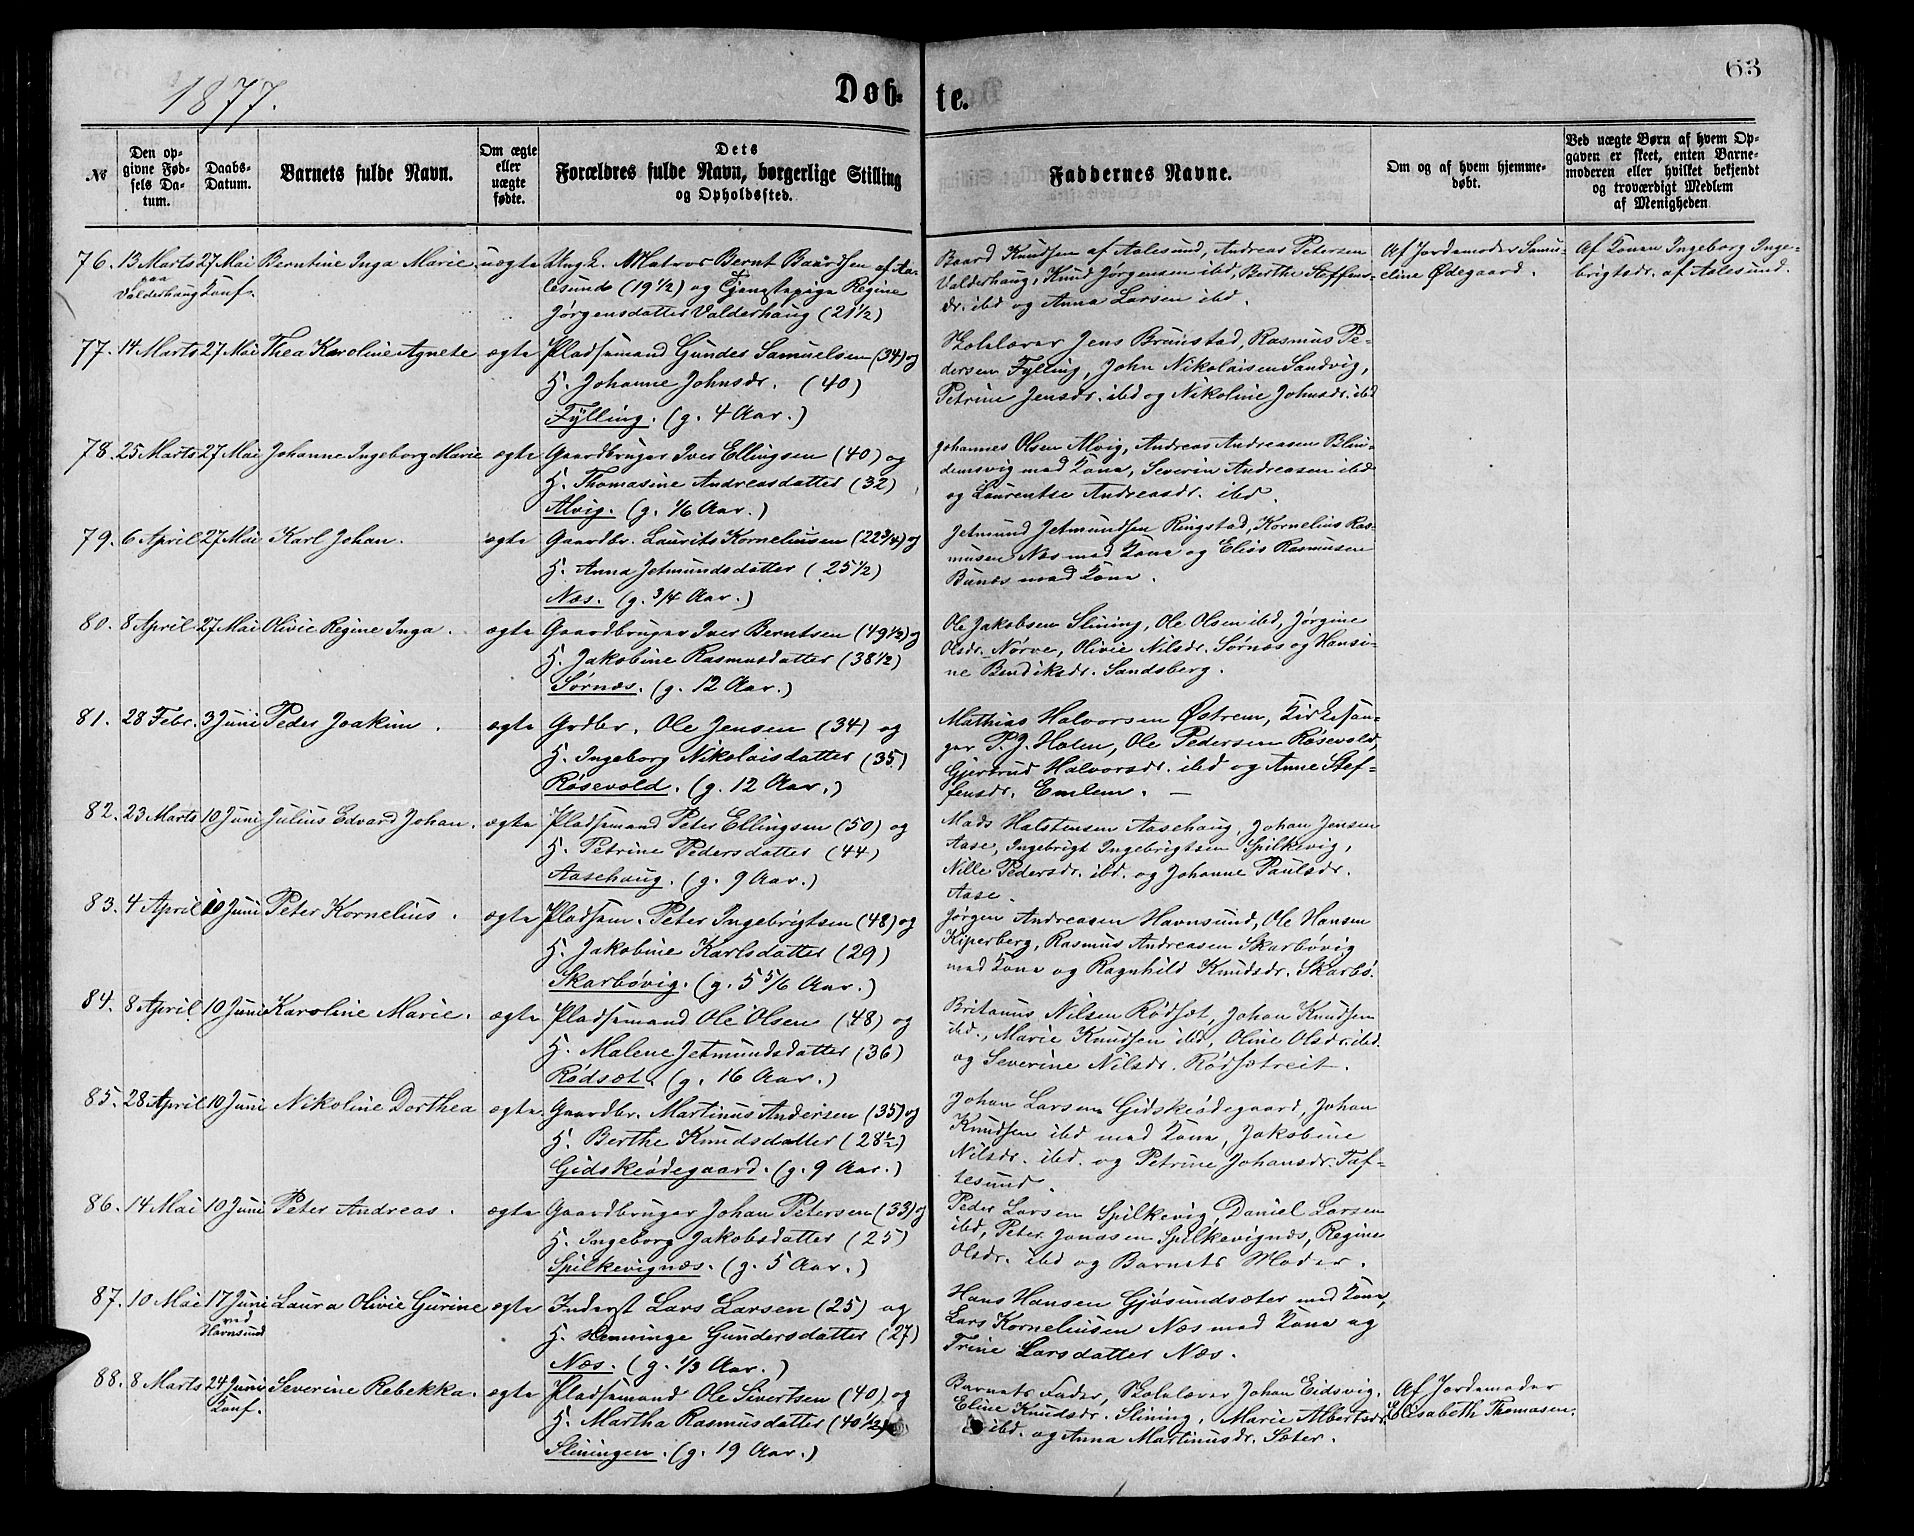 1877.
Døb-
te.
63
№
Den op-
givne Fød-
sels Da-
tum.
Daabs-
Datum.
Barnets fulde Navn.
Om ægte
eller
uægte
fødte.
Dets
Forældres fulde Navn, borgerlige Stilling
og Opholdssted.
Faddernes Navne.
Om og af hvem hjemme-
døbt.
Ved uægte Børn af hvem Op-
gaven er skeet, enten Barne-
moderen eller hvilket bekjendt
og troværdigt Medlem
af Menigheden
76. 13 Marts 27 Mai Berntine Inga Marie uægte
paa
Valderhaug Konf.
Ungk. Matros Bernt Baardsen af Aa-
lesund (19 1/2) og Tjenestepige Regine
Jørgensdatter Valderhaug (21 1/2)
Baard Knudsen af Aalesund, Andreas Petersen
Valderhaug, Knud Jørgensen ibd, Berthe Steffens-
dr. ibd og Anna Larsen ibd.
Af Jordemoder Samu-
eline Ødegaard.
Af Konen Ingeborg Inge-
brigtsdr. af Aalesund.
77. 14 Marts 27 Mai Thea Karoline Agnete ægte
Pladsemand Gundes Samuelsen (34) og
H. Johanne Johnsdr. (40)
Fylling. (g. 4 Aar.)
Skolelærer Jens Brunstad, Rasmus Pe-
dersen Fylling, John Nikolaisen Sandvig,
Petrine Jensdr. ibd og Nikoline Johnsdr. ibd
78. 25 Marts 27 Mai Johanne Ingeborg Marie ægte
Gaardbruger Iver Ellingsen (40) og
H. Thomasine Andreasdatter (32)
Alvig. (g. 1/6 Aar.)
Johannes Olsen Alvig, Andreas Andreasen Blin-
demsvig med Kone, Severin Andreasen ibd
og Laurentse Andreasdr. ibd.
79. 6 April 27 Mai Karl Johan. ægte
Gaardbr. Laurits Korneliusen (22 3/4) og
H. Anna Jetmundsdatter (25 1/2)
Næs. (g. 3/4 Aar.)
Jetmund Jetmundsen Ringstad, Kornelius Ras-
musen Næs med Kone og Elias Rasmusen
Bunæs med Kone.
80. 8 April 27 Mai Olivie Regine Inga. ægte
Gaardbruger Iver Berntsen (49 1/2) og
H. Jakobine Rasmusdatter (38 1/2)
Sørnæs. (g. 12 Aar.)
Ole Jakobsen Slining, Ole Olsen ibd, Jørgine
Olsdr. Nørve, Olivie Nilsdr. Sørnæs og Hansi-
ne Bendiksdr. Sandsberg.
81. 28 Febr. 3 Juni Peder Joakim. ægte
Grdbr. Ole Jensen (34) og
H. Ingeborg Nikolaisdatter (35)
Røsevold. (g. 12 Aar.)
Mathias Halvorsen Østrem, Kirkesan-
ger P. J. Holen, Ole Pedersen Røsevold,
Gjertrud Halvorsdr. ibd og Anne Stef-
fensdr. Emlem. —
82. 23 Marts 10 Juni Julius Edvard Johan. ægte
Pladsemand Peter Ellingsen (50) og
H. Petrine Pedersdatter (44)
Aasehaug. (g. 9 Aar.)
Mads Halstensen Aasehaug, Johan Jensen
Aase, Ingebrigt Ingebrigtsen Spilkevig,
Nille Pedersdr. ibd. og Johanne Paulsdr.
Aase.
83. 4 April 10 Juni Peter Kornelius. ægte
Pladsem. Peter Ingebrigtsen (48) og
H. Jakobine Karlsdatter (29)
Skarbøvig. (g. 5 5/6 Aar.)
Jørgen Andreasen Havnsund, Ole Hansen
Kiperberg, Rasmus Andreasen Skarbøvig
med Kone og Ragnhild Knudsdr. Skarbø.
84. 8 April 10 Juni Karoline Marie. ægte
Pladsemand Ole Olsen (48) og
H. Malene Jetmundsdatter (36)
Rødsæt. (g. 16 Aar.)
Britanus Nilsen Rødsæt, Johan Knudsen
ibd., Marie Knudsen ibd, Oline Olsdr. ibd.
og Severine Nilsdr. Rødsætreit.
85. 28 April 10 Juni Nikoline Dorthea ægte
Gaardbr. Martinus Andersen (35) og
H. Berthe Knudsdatter (28 1/2)
Gidskeødegaard. (g. 9 Aar.)
Johan Larsen Gidskeødegaard, Johan
Knudsen ibd med Kone, Jakobine
Nilsdr. ibd. og Petrine Johansdr. Taf-
tesund.
86. 14 Mai 10 Juni Peter Andreas. ægte
Gaardbruger Johan Petersen (33) og
H. Ingeborg Jakobsdatter (25)
Spilkevignæs. (g. 5 Aar.)
Peder Larsen Spilkevig, Daniel Larsen
ibd, Peter Jonasen Spilkevignæs, Regine
Olsdr. ibd og Barnets Moder.
87. 10 Mai 17 Juni Laura Olivie Gurine ægte
ved
Havnsund
Inderst Lars Larsen (25) og
H. Henninge Gundersdatter (27)
Næs. (g. 1/3 Aar.)
Hans Hansen Gjøsundsæter med Kone,
Lars Korneliusen Næs med Kone og
Trine Larsdatter Næs.
88. 8 Marts 24 Juni Severine Rebekka. ægte
Konf.
Pladsemand Ole Sivertsen (40) og
H. Martha Rasmusdatter (40 1/2)
Sliningen. (g. 19 Aar.)
Barnets Fader, Skolelærer Johan Eidsvig.
Eline Knudsdr. Slining, Marie Albertsdr.
ibd. og Anna Martinusdr. Sæter.
Af Jordemoder
Elisabeth Thomasen.